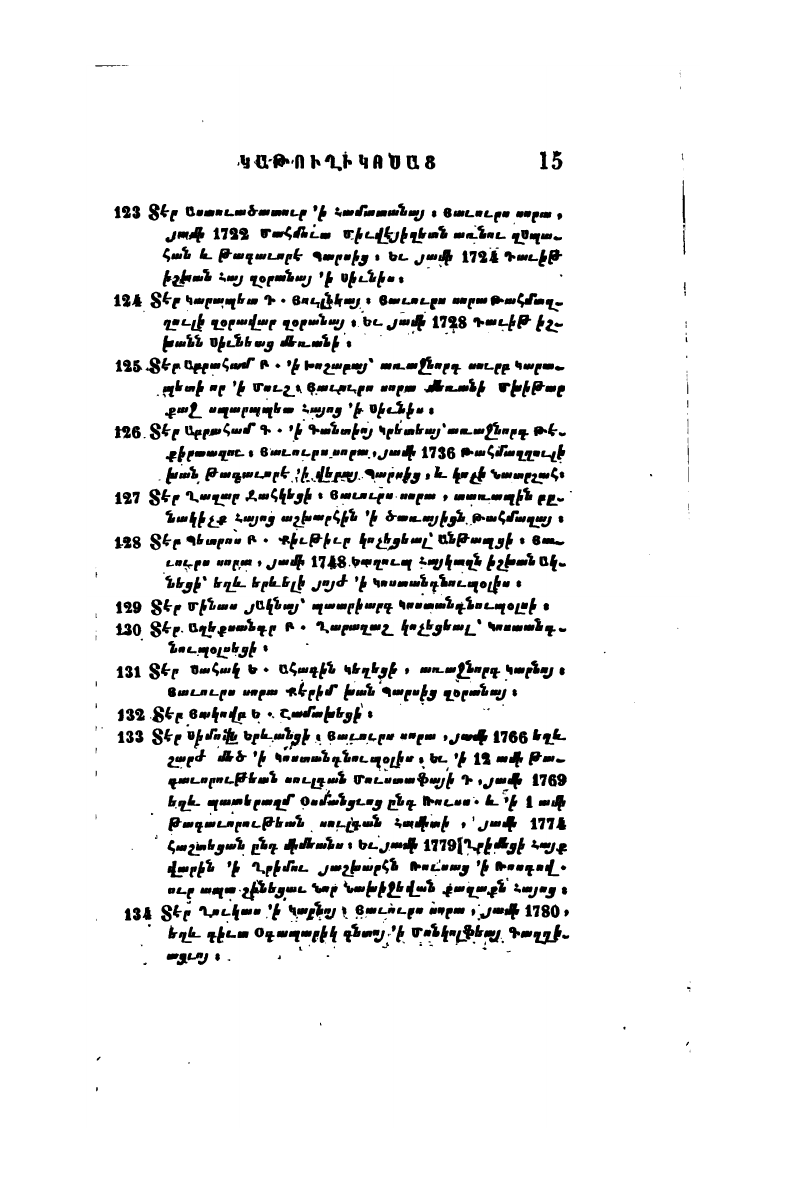 ԿԱԹՈՒՂԻԿՈՍԱՑ 15
123 Տէր Աստուածատուր ՚ի Համատանայ ։ Յաւուրս սորա ,
յամի 1722 Մահմուտ Միւվէյիզեան առնու զՍպա֊
հան և թագաւորէ Պարսից ։ Եւ յամի 1724 Դաւիթ
իշխան Հայ զօրանայ ՚ի Սիւնիս ։
124 Տէր Կարապետ Դ . Յուլնկայ ։ Յաւուրս սորա Թահմազ֊
ղուլի զօրավար զօրանայ ։ Եւ յամի 1728 Դաւիթ իշ֊
խանն Սիւնեաց մեռանի ։
125 Տէր Աբրահամ Բ . ՚ի Խոշաբայ՝ առաջնորդ սուրբ Կարա֊
պետի որ ՚ի Մուշ ։ Յաւուրս սորա մեռանի Մխիթար
քաջ սպարապետ Հայոց ՚ի Սիւնիս ։
126 Տէր Աբրահամ Գ . ՚ի Դանտիոյ Կրետեայ՝ առաջնորդ Թէ֊
քիրտաղու ։ Յաւուրս սորա , յամի 1736 Թահմազղուլի
խան թագաւորէ ՚ի վերայ Պարսից , և կոչի Նատրշահ ։
127 Տէր Ղազար Ջահկեցի ։ Յաւուրս սորա , տառապին բը֊
նակիչք Հայոց աշխարհին ՚ի ծառայիցն Թահմազայ ։
128 Տէր Պետրոս Բ . Քիւթիւր կոչեցեալ՝ Անթապցի ։ Յա֊
ւուրս սորա , յամի 1748 Եաղուպ Հայկազն իշխան Ակ֊
նեցի՝ եղև երևելի յոյժ ՚ի Կոստանդնուպօլիս ։
129 Տէր Մինաս յԱկնայ՝ պատրիարգ Կոստանդնուպօլսի ։
130 Տէր Աղեքսանդր Բ . Ղարաղաշ կոչեցեալ՝ Կոստանդ֊
նուպօլսեցի ։
131 Տէր Սահակ Ե . Ահագին Կեղեցի , առաջնորդ Կարնայ ։
Յաւուրս սորա Քէրիմ խան Պարսից զօրանայ ։
132 Տէր Յակովբ Ե . Շամախեցի ։
133 Տէր Սիմոն Երևանցի ։ Յաւուրս սորա , յամի 1766 եղև
շարժ մեծ ՚ի Կոստանդնուպօլիս ։ Եւ ՚ի 12 ամի թա֊
գաւորութեան սուլդան Մուստաֆայի Դ , յամի 1769
եղև պատերազմ Օսմանցւոց ընդ Ռուսս . և ՚ի 1 ամի
թագաւորութեան սուլդան Համիտի , յամի 1774
հաշտեցան ընդ միմեանս ։ Եւ յամի 1779 Ղրիմեցի Հայք
վարին ՚ի Ղրիմու յաշխարհն Ռուսաց ՚ի Ռոսդով .
ուր ապա շինեցաւ Նոր Նախիջեվան քաղաքն Հայոց ։
134 Տէր Ղուկաս ՚ի Կարնոյ ։ Յաւուրս սորա , յամի 1780 ,
եղև գիւտ Օգապարիկ գետոյ ՚ի Մոնկոլֆեայ Գաղղի֊
ացւոյ ։